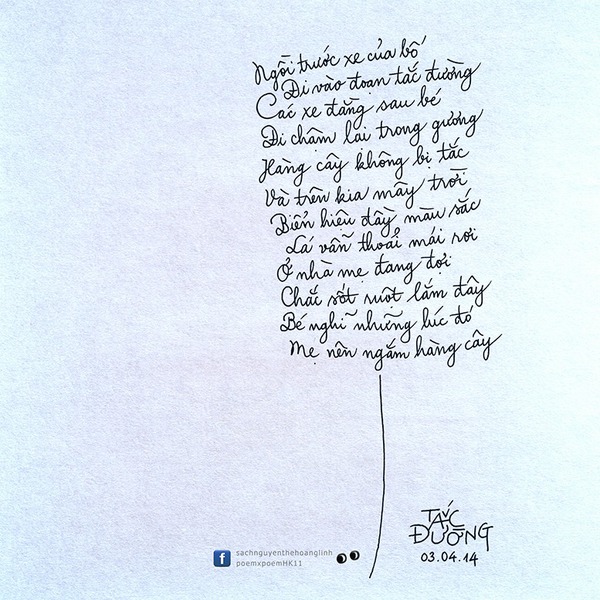 Ngồi trước xe của bố
Đi vào đoạn tắc đường
Các xe đằng sau bé
Đi chậm lại trong gương
Hàng cây không bị tắc
Và trên kia mây trời
Biển hiệu đầy màu sắc
Lá vẫn thoải mái rơi
Ở nhà mẹ đang đợi
Chắc sốt ruột lắm đây
Bé nghĩ những lúc đó
Mẹ nên ngắm hàng cây
TẮC
ĐƯỜNG
03.04.14
f
sachnguyenthehoanglinh
poemxpoemHK11